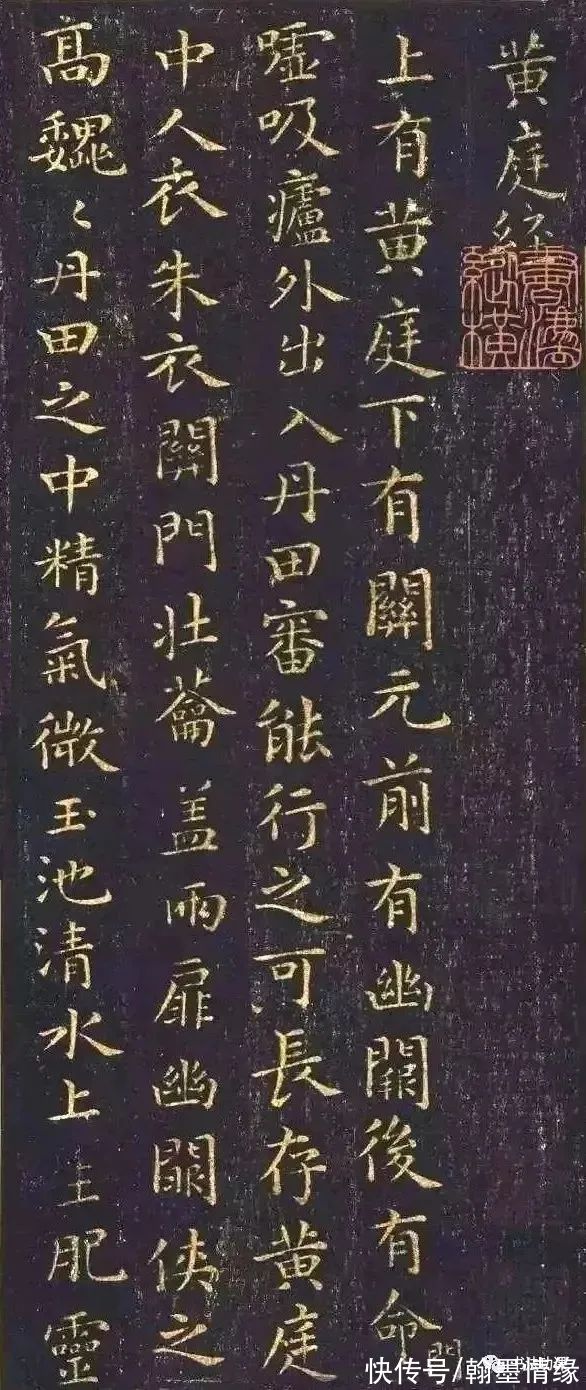 黄庭經
上有黄庭下有關元前有幽闕後有命門
嘘吸廬外出入丹田審能行之可長存黄庭
中人衣朱衣關門壯蘥盖兩扉幽闕俠之
高巍〻丹田之中精氣微玉池清水上生肥靈
書法縱橫
快传号/翰墨情缘